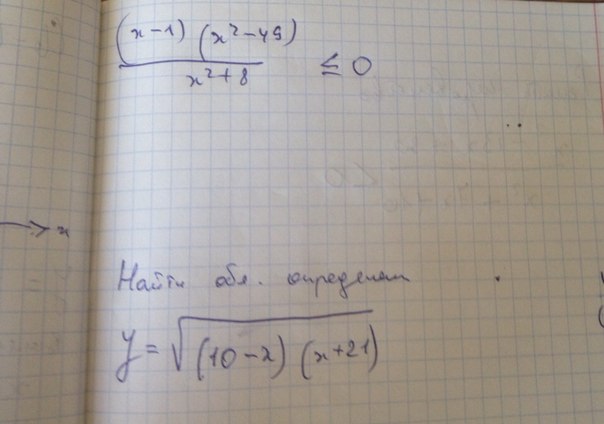 (x-1) (x²-49)
x²+8
≤ 0
x
Найти обл. определен
y = √(10-x) (x+21)